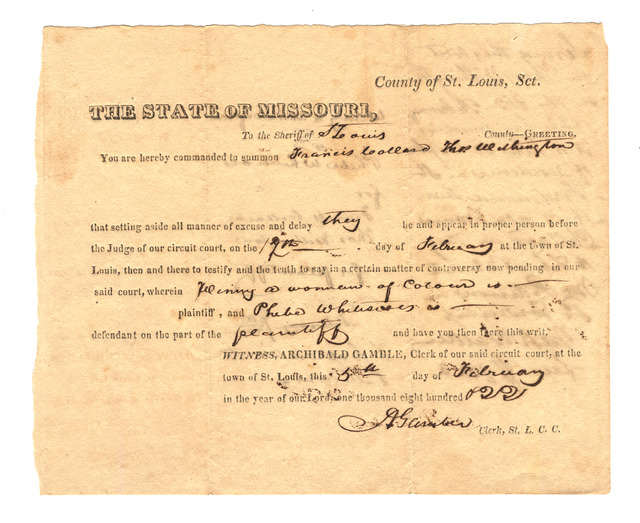 County of St. Louis, Sct.
THE STATE OF MISSOURI,
To the Sheriff of St Louis County—GREETING.
You are hereby commanded to summon Francis Collard Thos Withington
that setting aside all manner of excuse and delay they be and appear in proper person before
the Judge of our circuit court, on the day of February at the town of St.
Louis, then and there to testify and the truth to say in a certain matter of controversy now pending in our
said court, wherein a woman of Colour is
plaintiff, and Phebe is
defendant on the part of the plaintiff and have you then there this writ.
WITNESS, ARCHIBALD GAMBLE, Clerk of our said circuit court, at the
town of St. Louis, this 5th day of February
in the year of our Lord, one thousand eight hundred & 22
A Gamble
Clerk, St. L. C. C.